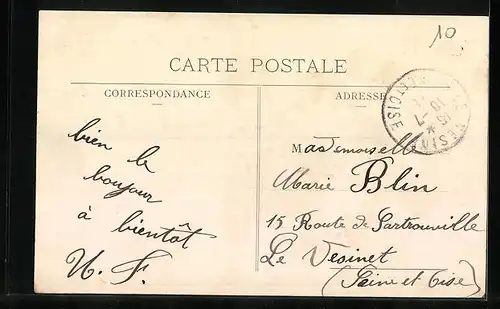 10
CARTE POSTALE
CORRESPONDANCE
ADRESSE
bien le
bonjour
à bientôt
U. F.
Mademoiselle
Marie Blin
15 Route de Sartrouville
Le Vesinet
(Seine et Oise)